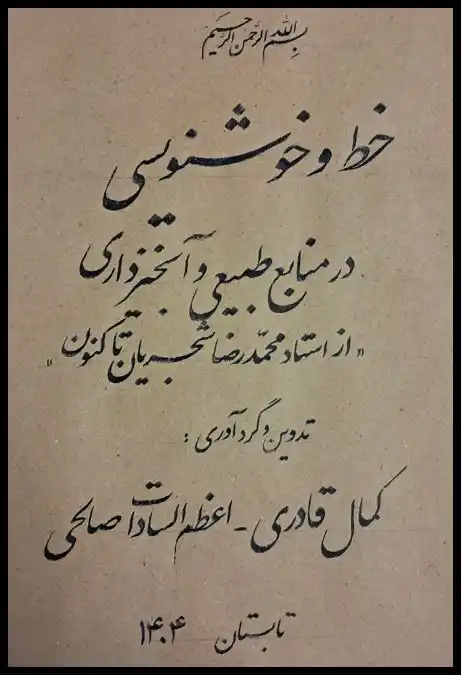 بسم الله الرحمن الرحیم
خط و خوشنویسی
در منابع طبیعی و آبخیزداری
« از استاد محمّدرضا شجریان تا کنون »
تدوین و گردآوری :
کمال قادری - اعظم السادات صالحی
تابستان ۱۴۰۴